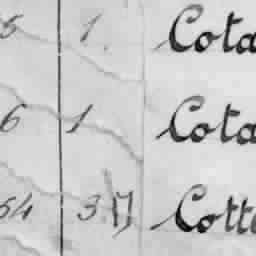 5 1. Cota
6 1 Cota
54 3. Cotte